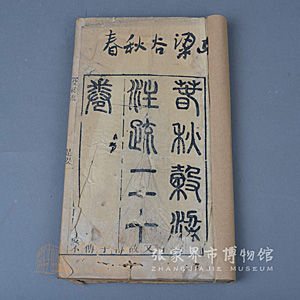 春秋谷梁
春秋穀梁
注疏二十
卷
张家界市博物馆
ZHANGJIAJIE MUSEUM